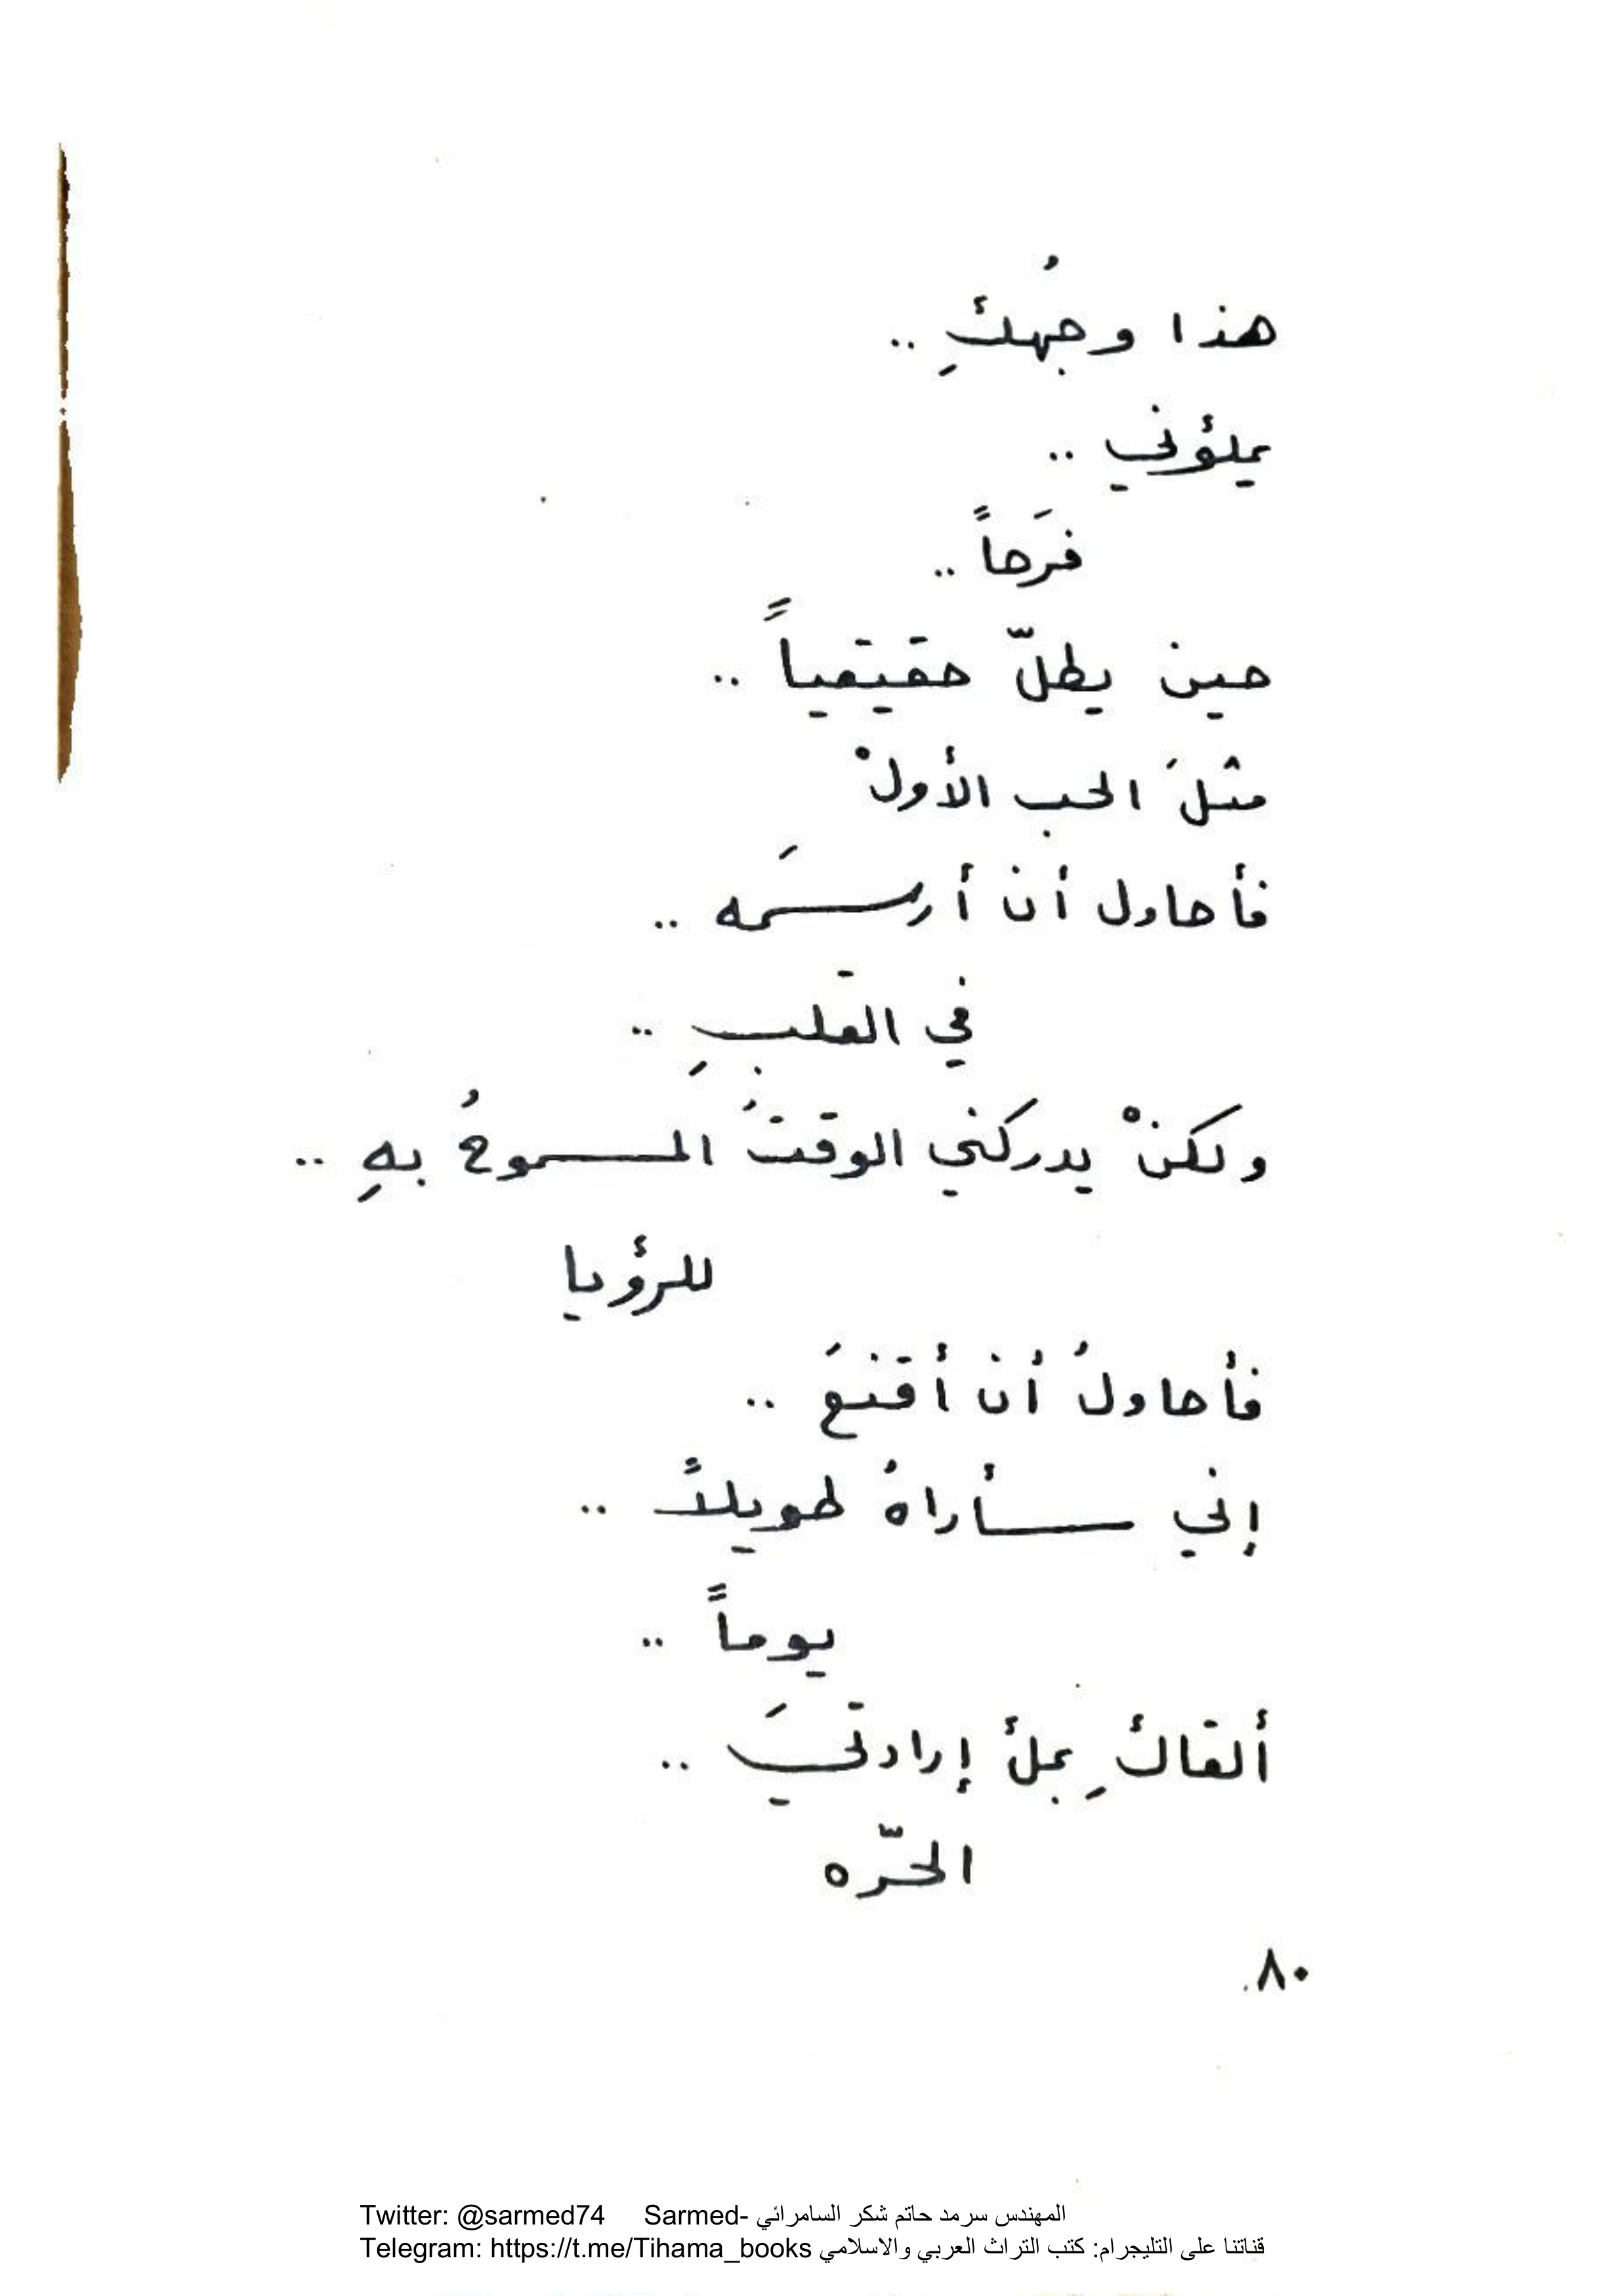 هذا وجهُكِ ..
يملؤني ..
فرَحاً ..
حين يطلّ حقيقياً ..
مثلَ الحب الأولْ
فأحاول أن أرسمَه ..
في القلبِ ..
ولكنْ يدركني الوقتُ المسموحُ بهِ ..
للرؤيا
فأحاولُ أن أقنعَ ..
إني سأراهُ طويلاً ..
يوماً ..
ألقاكِ بملأ إرادتيَ ..
الحرّه
٨٠
Twitter: @sarmed74 Sarmed- المهندس سرمد حاتم شكر السامرائي
Telegram: https://t.me/Tihama_books قناتنا على التليجرام: كتب التراث العربي والاسلامي